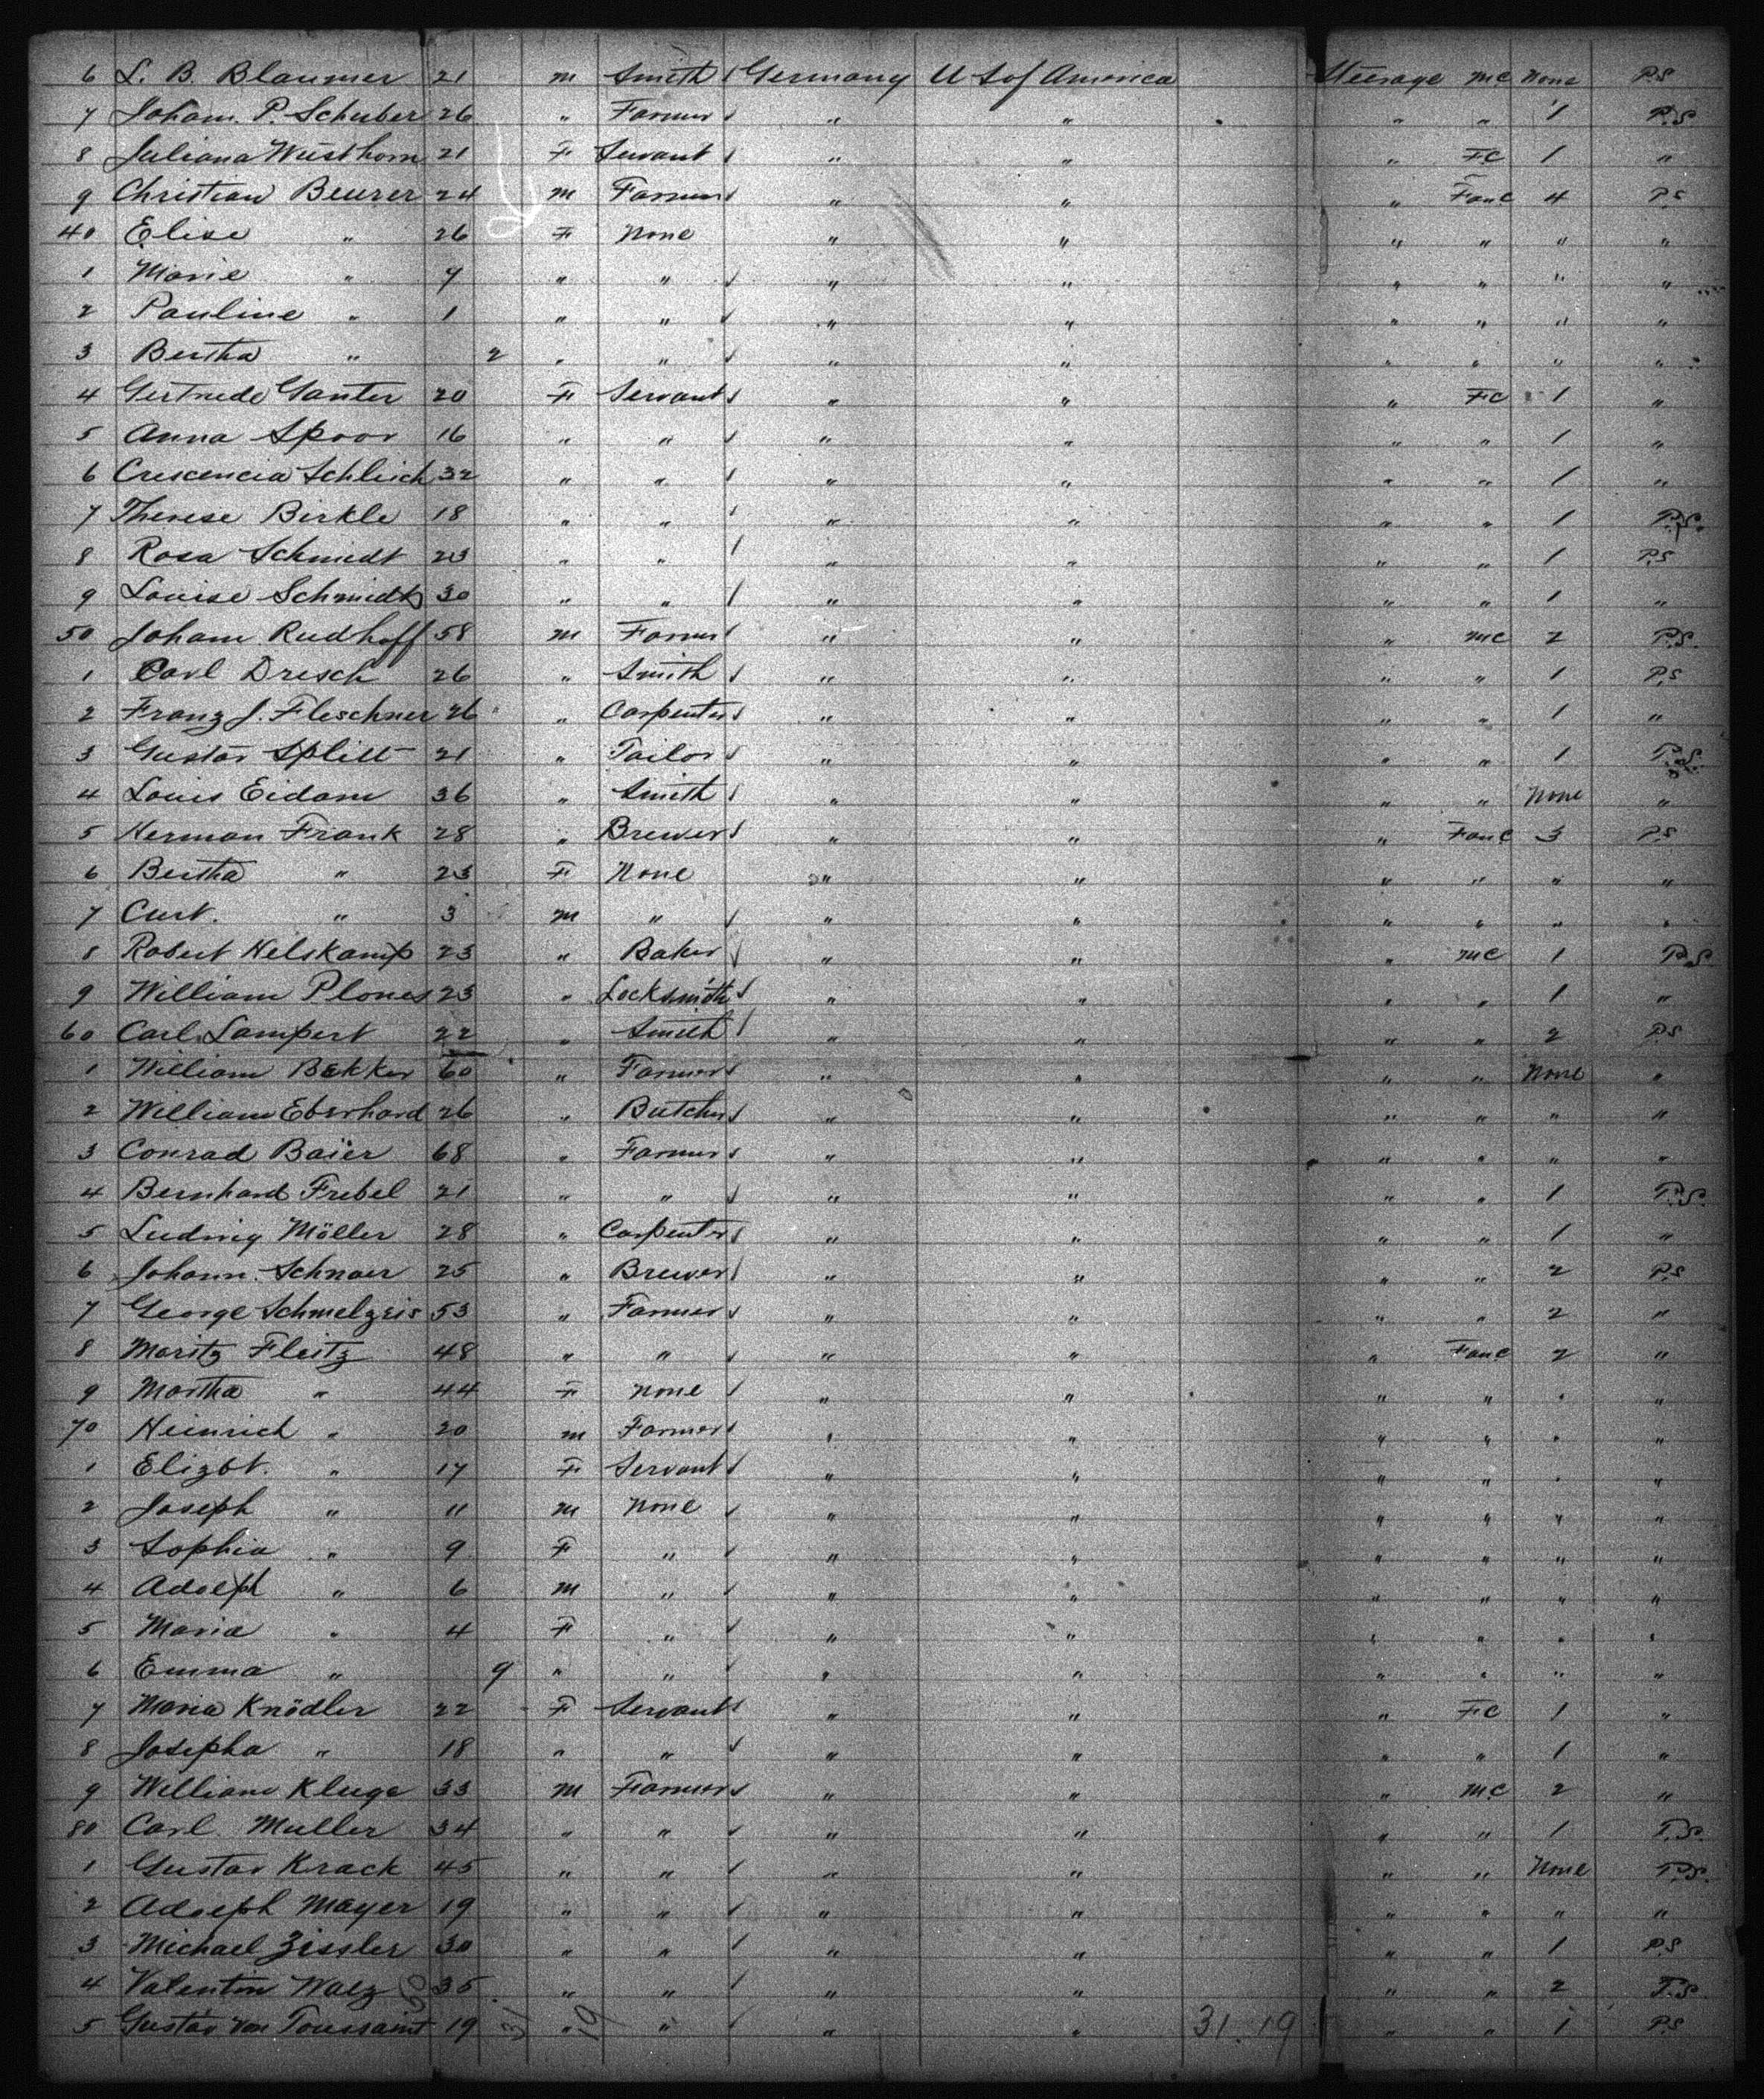 6 L. B. Blaumer 21 m Smith Germany U S of America Steerage MC None P.S
7 Joham. P. Schuber 26 " Farmer " " " " 1 P.S
8 Juliana Wüsthorn 21 F Servant " " " FC 1 "
9 Christian Beurer 24 m Farmer " " " Fan C 4 P.S
40 Elise " 26 F None " " " " " "
1 Marie " 7 " " " " " " " "
2 Pauline " 1 " " " " " " " "
3 Bertha " 2 " " " " " " " "
4 Gertrude Ganter 20 F Servant " " " FC 1 "
5 Anna Spoor 16 " " " " " " 1 "
6 Crescencia Schleich 32 " " " " " " 1 "
7 Therese Birkle 18 " " " " " " 1 P.S.
8 Rosa Schmidt 23 " " " " " " 1 P.S
9 Louise Schmidt 30 " " " " " " 1 "
50 Joham Rudhoff 58 m Farmer " " " MC 2 P.S.
1 Carl Dresch 26 " Smith " " " " 1 P.S
2 Franz J. Fleschner 26 " Carpenter " " " " 1 "
3 Gustav Splitt 21 " Tailor " " " " 1 P.S.
4 Louis Eidam 36 " Smith " " " " None "
5 Herman Frank 28 " Brewer " " " Fan C 3 P.S
6 Bertha " 23 F None " " " " " "
7 Curt. " 3 m " " " " " " "
8 Robert Helskamp 23 " Baker " " " MC 1 P.S
9 William Plones 23 " Locksmith " " " " 1 "
60 Carl Lampert 22 " Smith " " " " 2 P.S
1 William Bekker 60 " Farmer " " " " None "
2 William Eberhard 26 " Butcher " " " " " "
3 Conrad Baier 68 " Farmer " " " " " "
4 Bernhard Frebel 21 " " " " " " 1 P.S.
5 Ludwig Möller 28 " Carpenter " " " " 1 "
6 Johann. Schnaer 25 " Brewer " " " " 2 P.S
7 George Schmelzeis 53 " Farmer " " " " 2 "
8 Moritz Fleitz 48 " " " " " Fan C 2 "
9 Martha " 44 F None " " " " " "
70 Heinrich " 20 m Farmer " " " " " "
1 Elizbt. " 17 F Servant " " " " " "
2 Joseph " 11 m None " " " " " "
3 Sophia " 9 F " " " " " " "
4 Adolph " 6 m " " " " " " "
5 Maria " 4 F " " " " " " "
6 Emma " 9 " " " " " " " "
7 Maria Knödler 22 F Servant " " " FC 1 "
8 Josepha " 18 " " " " " " 1 "
9 William Kluge 33 m Farmer " " " MC 2 "
80 Carl Muller 34 " " " " " " 1 P.S.
1 Gustav Krack 45 " " " " " " None P.S.
2 Adolph Mayer 19 " " " " " " " "
3 Michael Zissler 30 " " " " " " 1 P.S
4 Valentin Walz 35 " " " " " " 2 P.S
5 Gustav von Toussaint 19 31 " 19 " " " 31.19 " " 1 P.S